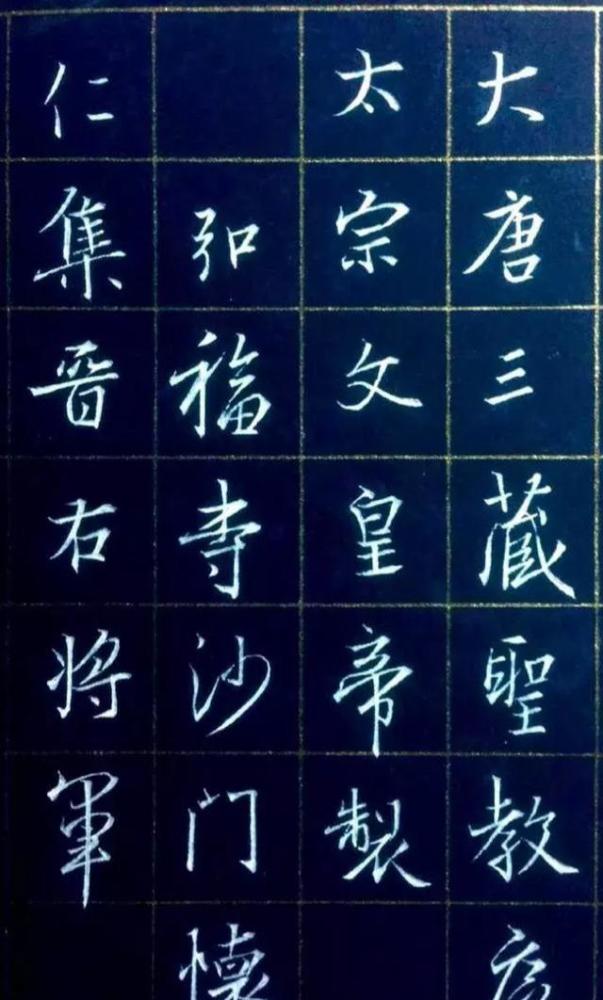 大唐三藏聖教序
太宗文皇帝製
弘福寺沙门懷
仁集晋右将軍